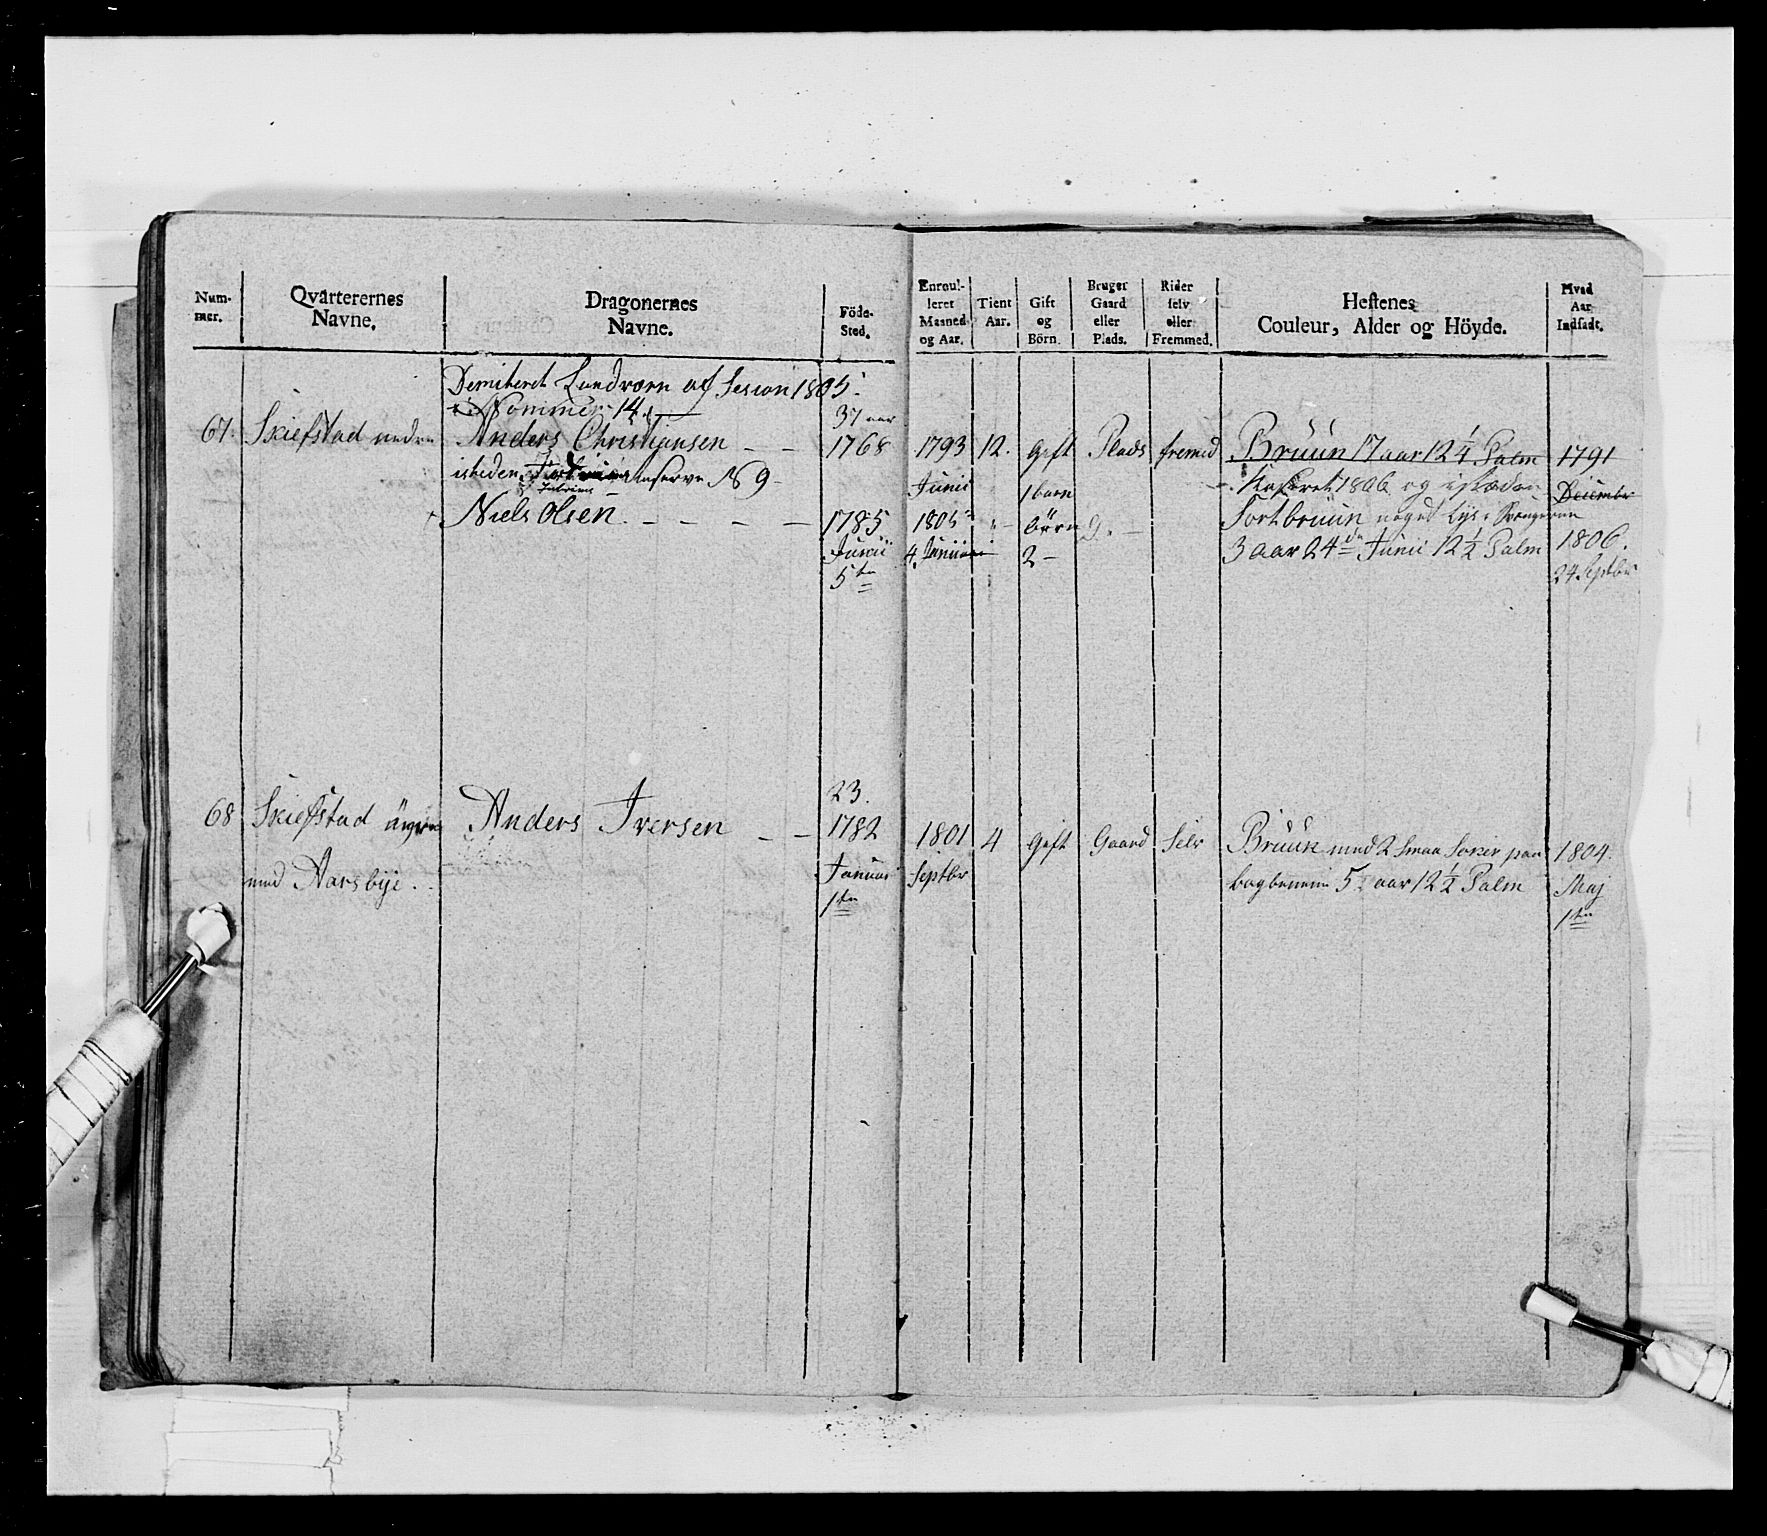 Num-
mer.
Qvarterernes
Navne.
Dragonernes
Navne.
Föde-
Sted.
Enroul-
leret
Maaned
og Aar.
Tient
Aar.
Gift
og
Börn.
Bruger
Gaard
eller
Plads.
Rider
selv
eller
Fremmed.
Hestenes
Couleur, Alder og Höyde.
Hvad
Aar
Indsadt.
Demiteret Landværn af Sesion 1805
Nommer 14
37 aar
67. Skiefstad nedre Anders Christiansen - - 1768 1793 12. Gift Plads fremed Bruun 17 aar 12 1/4 Palm 1791
isteden Reserve No 9 - Junii 1 barn Kaseret 1806 og Decembr
Niels Olsen. - - - - 1785 1805 börn Sortbruun noget lys
Junii 4 Januari 2 - 3 aar 24de Junii 12 1/2 Palm 1806.
5te 24 Septbr
23.
68 Skiefstad Anders Iversen - - 1782 1801 4 Gift Gaard Selv Bruun med 2 smaa paa 1804.
med Aarsbye. Januari Septbr bagbenene 5 aar 12 1/2 Palm Maj
1te 1te